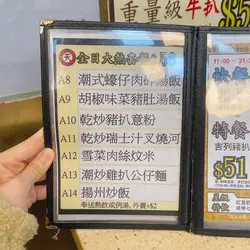 重量級 牛扒 $5
全日大熱套餐 $5
A8 潮式蠔仔肉碎湯飯
A9 胡椒味菜豬肚湯飯
A10 乾炒豬扒意粉
A11 乾炒瑞士汁叉燒河
A12 雪菜肉絲炆米
A13 潮少雞扒公仔麵
A14 揚州炒飯
奉送熱飲或例湯，外賣+$2
11:00 - 21:
特餐
吉列豬扒
$51